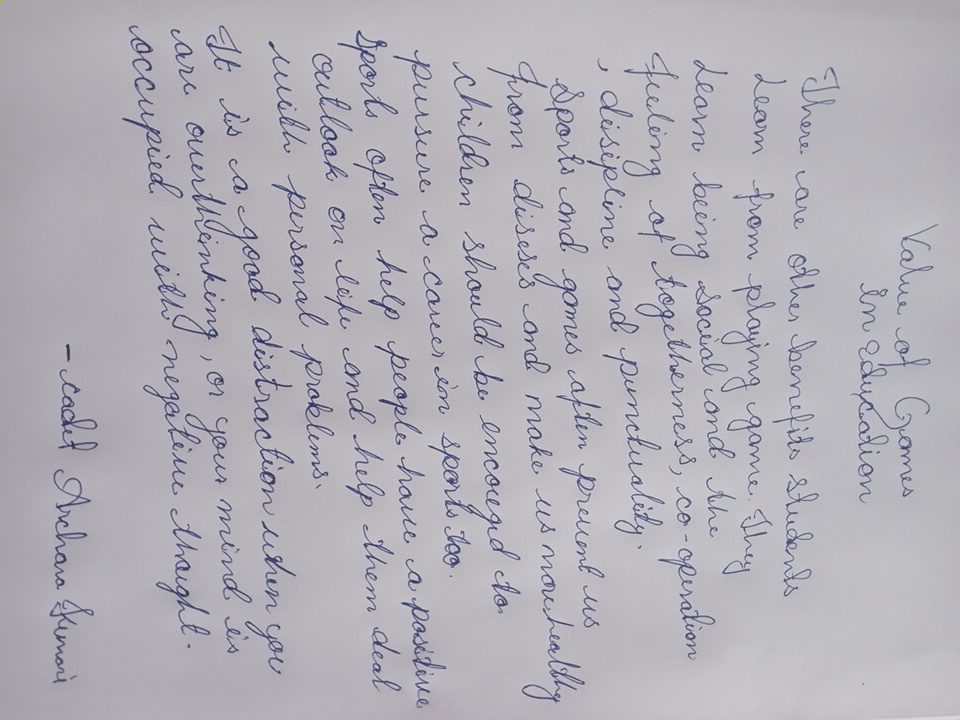 Value of Games
in Education
There are other benefits students
Learn from playing game. They
Learn being social and the
Feeling of togetherness, co-operation
, disipline and punctuality.
Sports and games often prevent us
from diseses and make us more healthy
children should be encouged to
pursure a career in sports too.
Sports often help people have a positive
outlook on life and help them deal
with personal problems.
It is a good distraction when you
are overthinking, or your mind is
occupied with negative thaight.
- cadet Archana Kumari